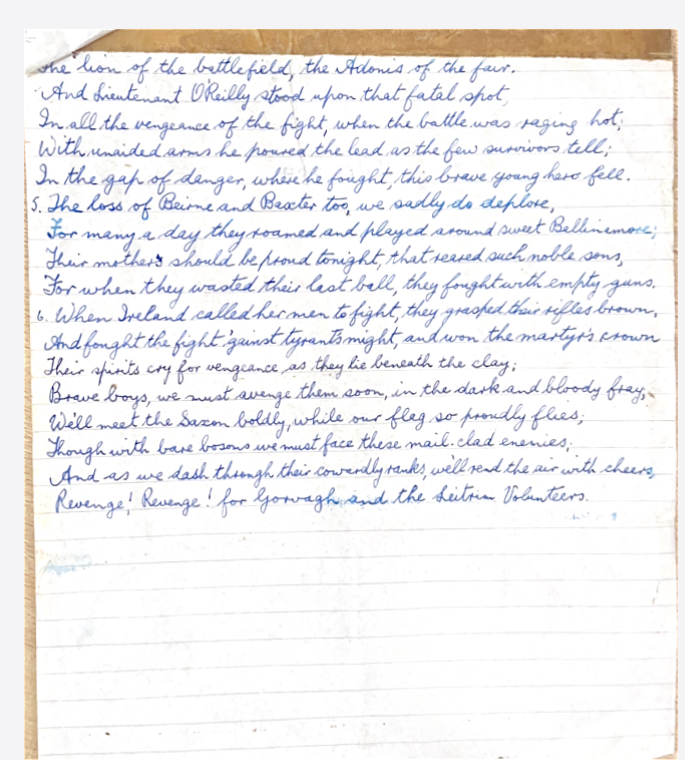 The lion of the battlefield, the Adonis of the fair.
And Lieutenant O'Reilly stood upon that fatal spot,
In all the vengeance of the fight, when the battle was raging hot;
With unaided arms he poured the lead as the few survivors tell;
In the gap of danger, where he fought, this brave young hero fell.
5. The loss of Beirne and Baxter too, we sadly do deplore,
For many a day they roamed and played around sweet Ballinamore;
Their mothers should be proud tonight, that reared such noble sons,
For when they wasted their last ball, they fought with empty guns.
6. When Ireland called her men to fight, they grasped their rifles brown,
And fought the fight 'gainst tyrants might, and won the martyr's crown
Their spirits cry for vengeance, as they lie beneath the clay;
Brave boys, we must avenge them soon, in the dark and bloody fray,
We'll meet the Saxon boldly, while our flag so proudly flies;
Though with bare bosoms we must face these mail-clad enemies;
And as we dash through their cowardly ranks, we'll rend the air with cheers,
Revenge! Revenge! for Gorvagh, and the Leitrim Volunteers.